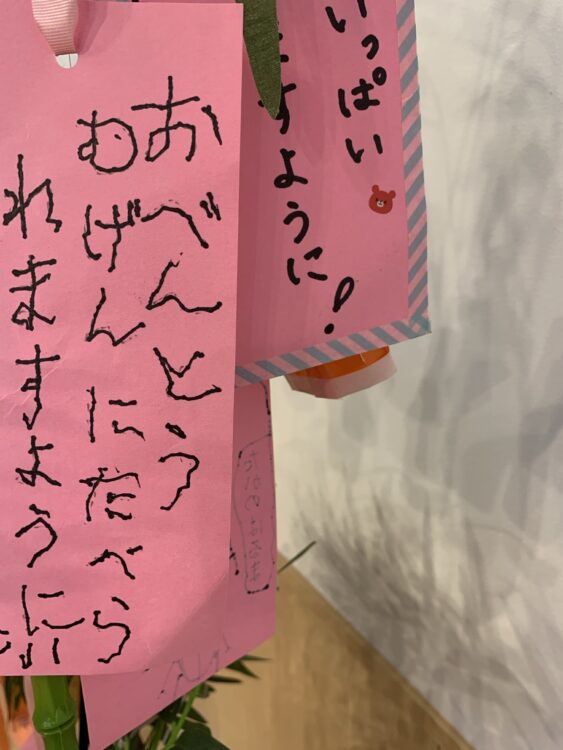 いっぱい
ますように!
おべんとう
むげんにたべら
れますように